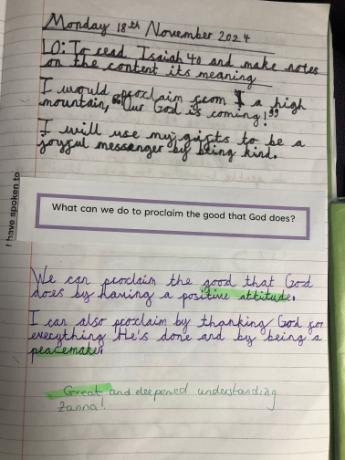 Monday 18th November 2024
LO: To read Isaiah 40 and make notes
on the content its meaning
I would proclaim from a high
mountain, "Our God is coming!"
I will use my gifts to be a
joyful messenger by being kind.
I have spoken to
What can we do to proclaim the good that God does?
We can proclaim the good that God
does by having a positive attitude.
I can also proclaim by thanking God for
everything He's done and by being a
peacemaker
Great and deepened understanding
Zanna!